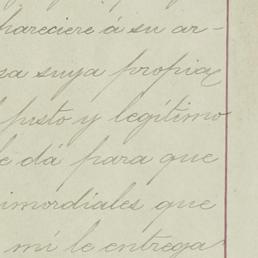 pareciere á su ar-
sa suya propia
justo y legítimo
le dá para que
imordiales que
mí le entrega